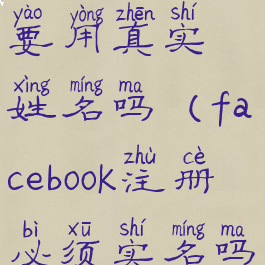 yào yòng zhēn shí
要用真实
xìng míng ma
姓名吗(fa
zhù cè
cebook注册
bì xū shí míng ma
必须实名吗